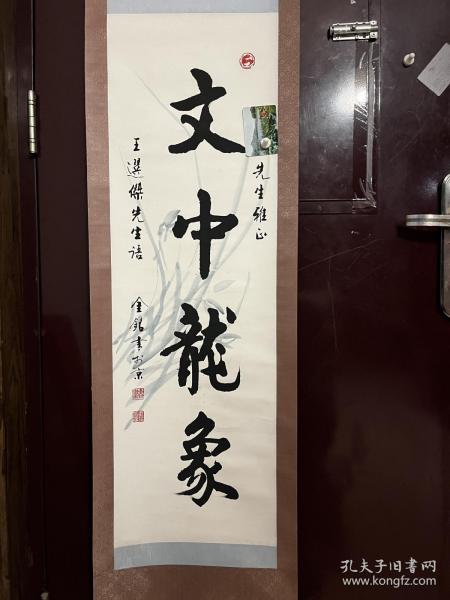 文中龍象
先生雅正
王選傑先生語
金銘書於京
孔夫子旧书网
www.kongfz.com